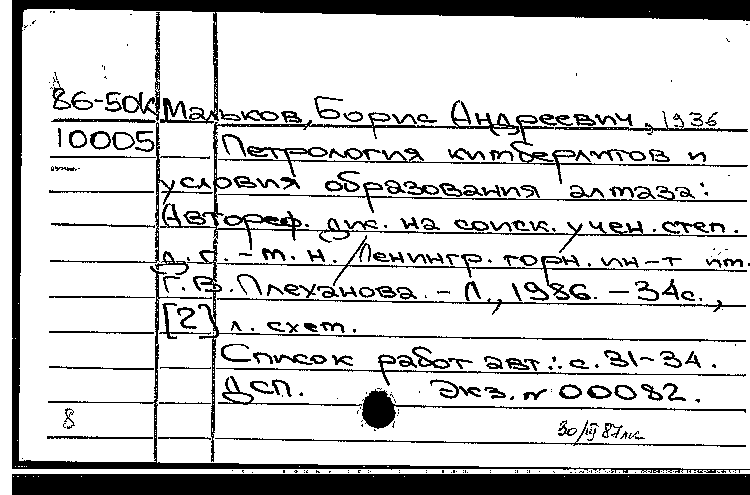 86-50к Мальков, Борис Андреевич, 1936
10005 Петрология кимберлитов и
условия образования алмаза:
Автореф. дис. на соиск. учен. степ.
д. г. - м. н. / Ленингр. горн. ин-т им.
Г. В. Плеханова. - Л., 1986. - 34с.,
[2] л. схем.
Список работ авт.: с. 31-34.
ДСП. Экз. № 00082.
8
30/III 87